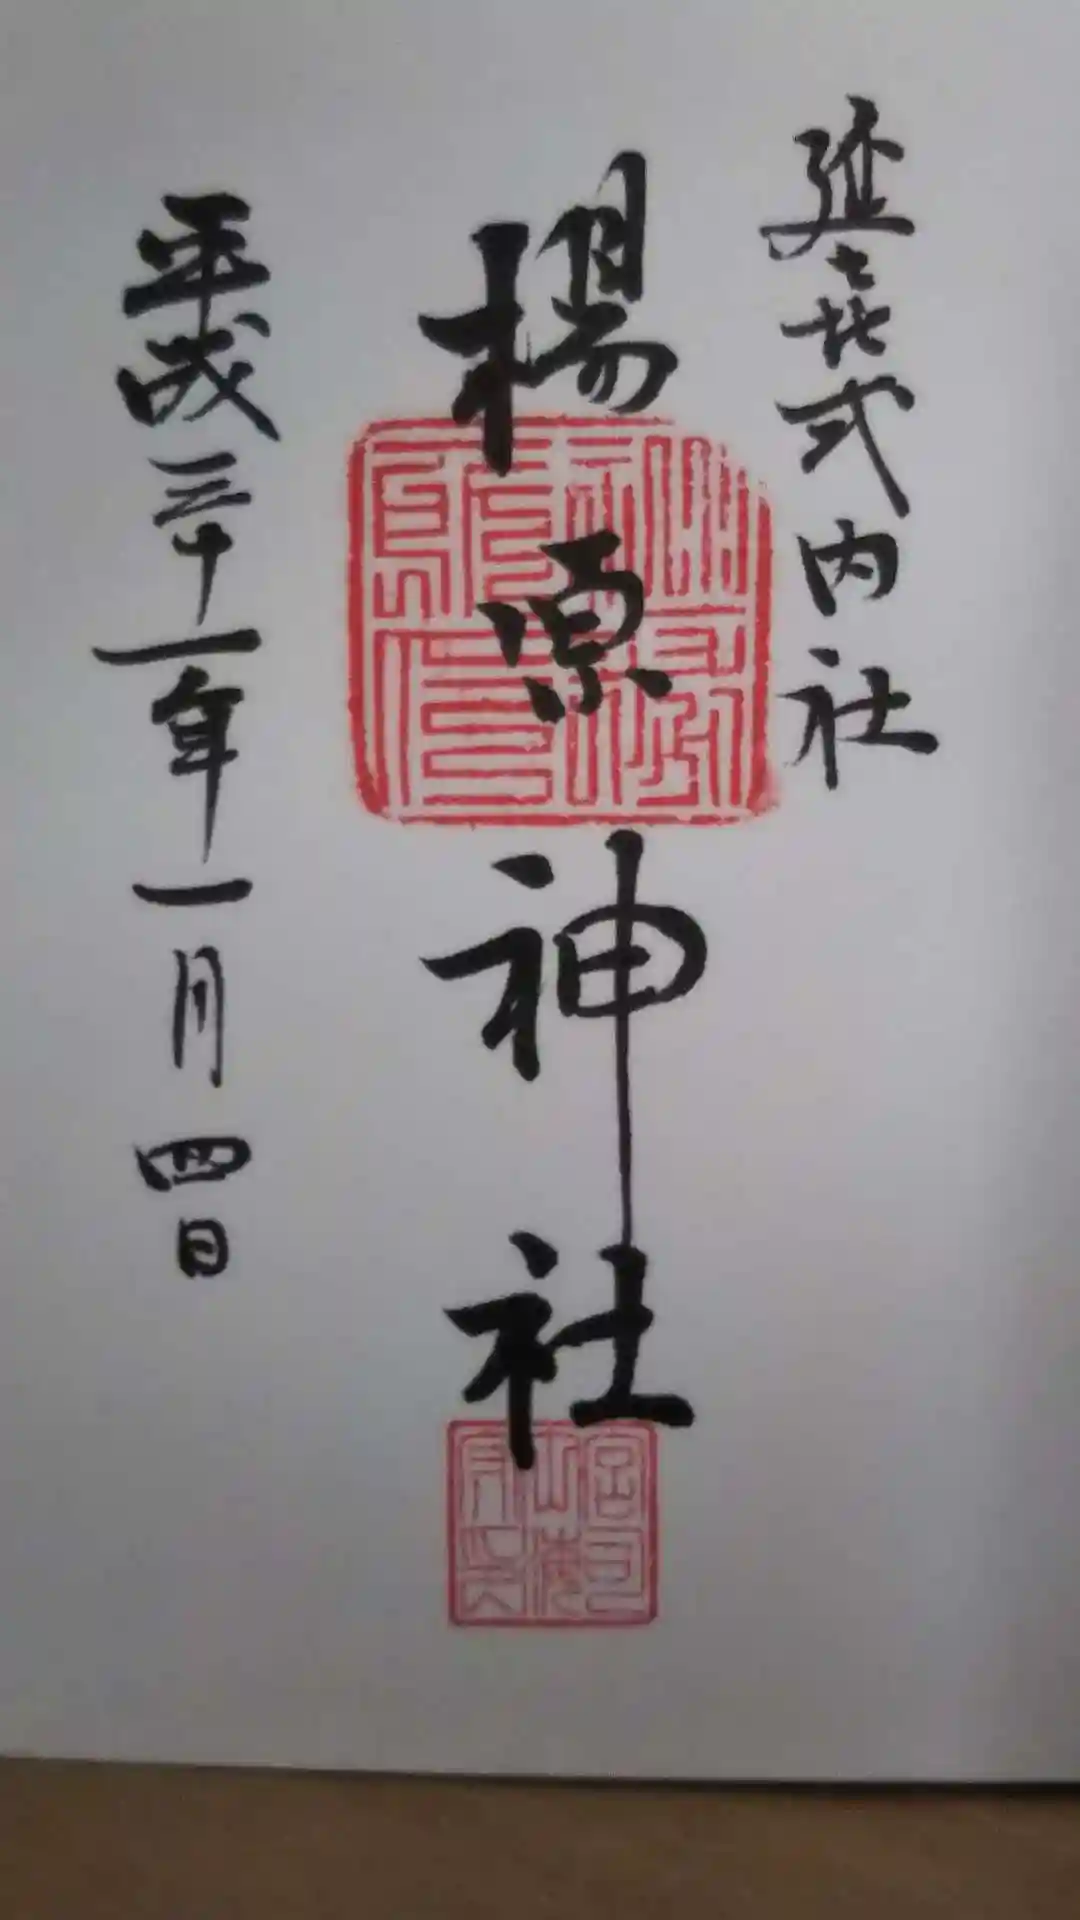 延㐂式内社
楊原神社
平成三十一年一月四日